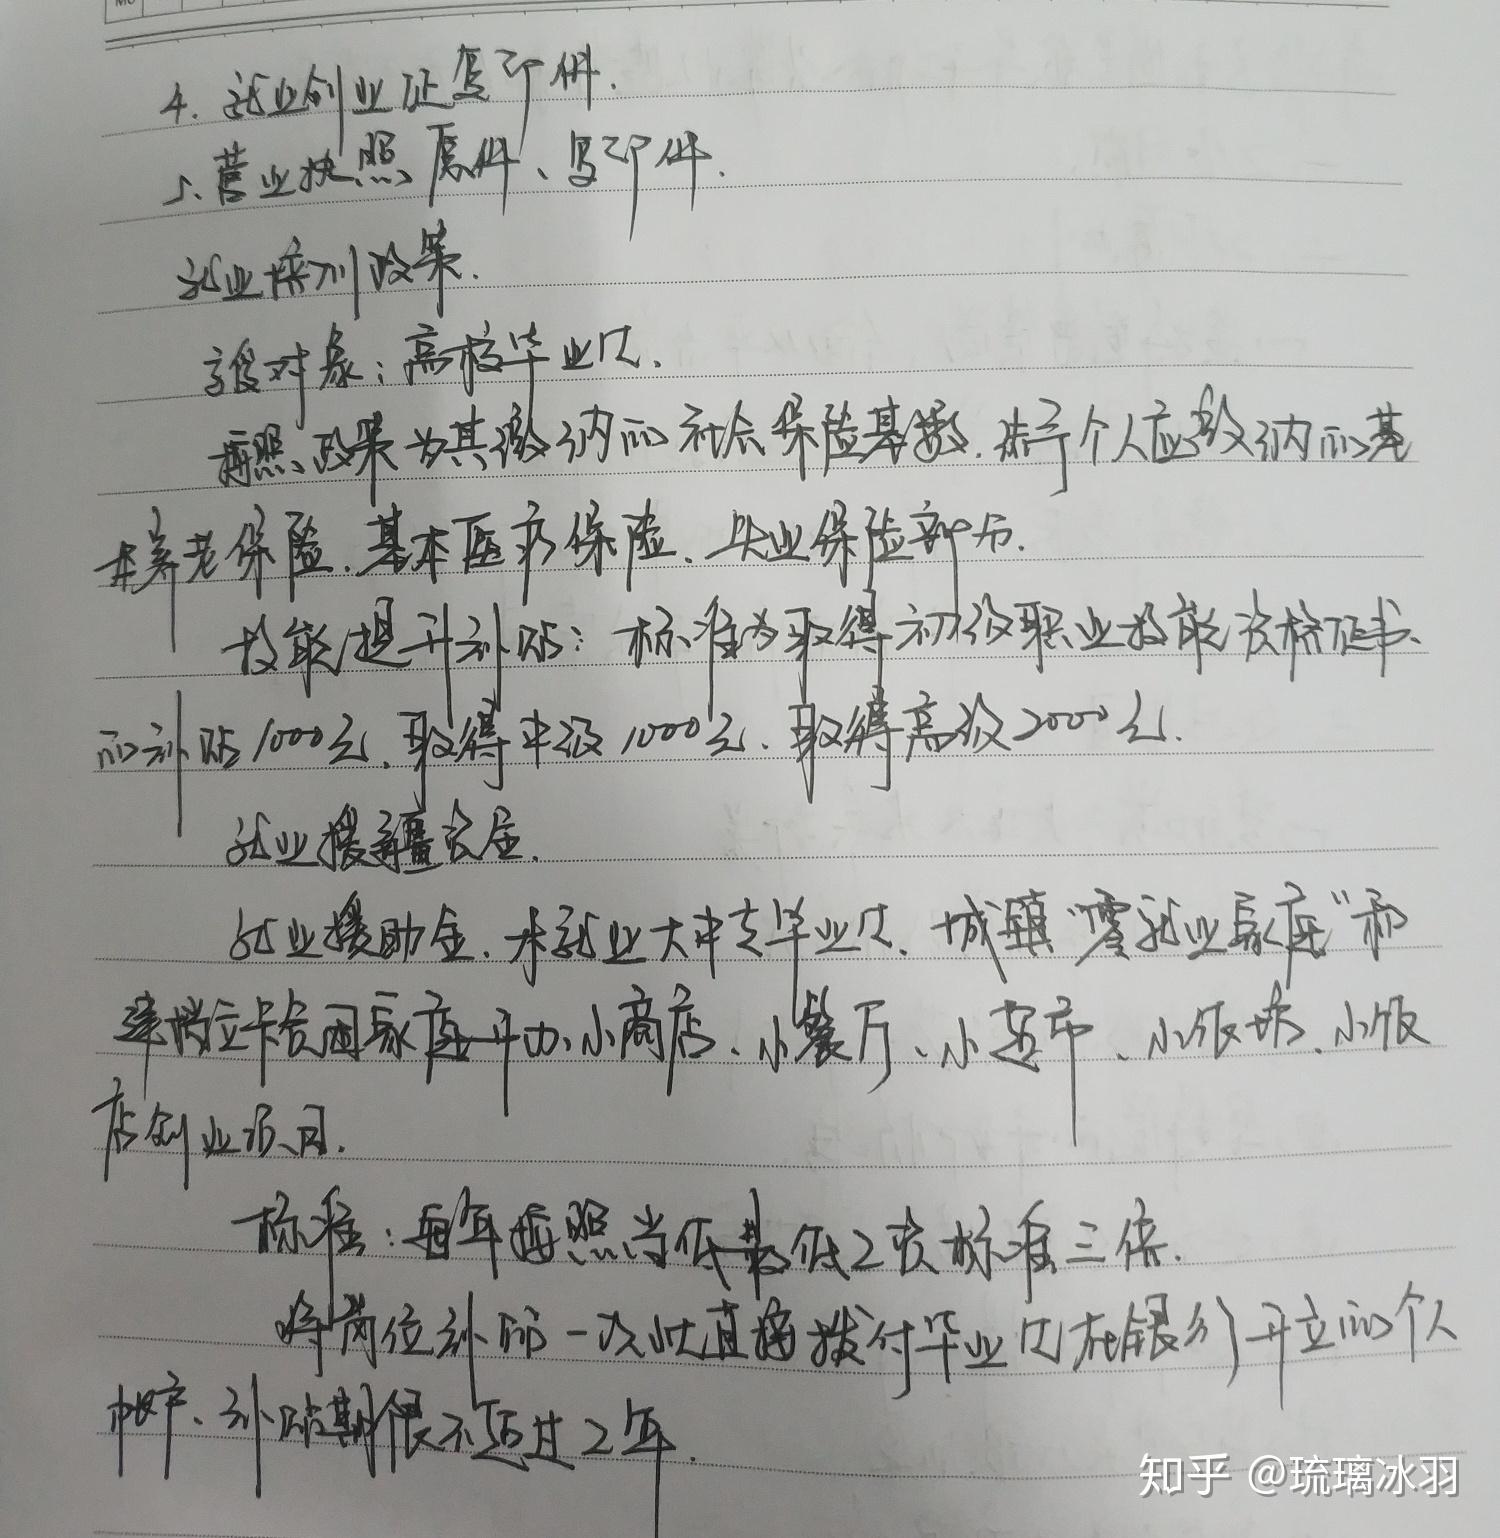 4. 就业创业证复印件.
5、营业执照原件、复印件.
就业培训政策.
享受对象：高校毕业生.
按照政策为其缴纳的社会保险基数.给予个人应缴纳的基
本养老保险.基本医疗保险.失业保险部分.
技能提升补贴：标准为取得初级职业技能资格证书、
的补贴1000元.取得中级1000元.取得高级2000元.
就业援疆资金.
就业援助金.未就业大中专毕业生.城镇“零就业家庭”和
建档立卡贫困家庭开办小商店、小餐厅、小超市、小饭馆.小饭
店创业项目.
标准：每年按照当低最低工资标准三倍.
将岗位补贴一次性直接拨付毕业生在银行开立的个人
帐户、补贴期限不超过2年.
知乎 @琉璃冰羽